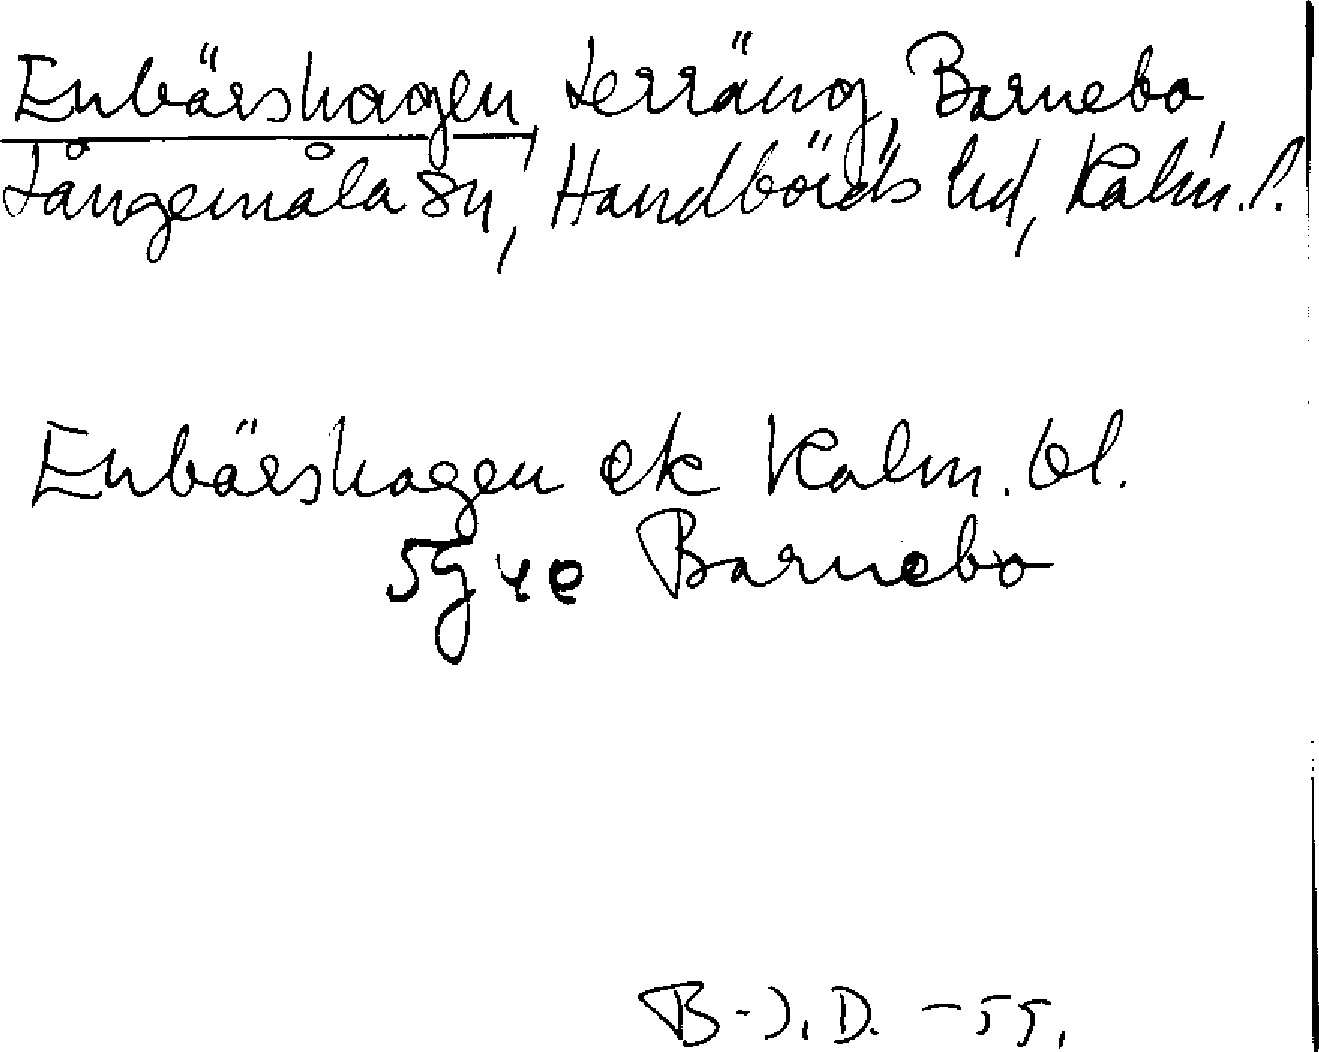 Enbärshagen, terräng, Barnebo,
Långemåla sn, Handbörds hd, Kalm. l.
Enbärshagen ek Kalm. bl.
5g 4e Barnebo
B-J. D. -55.